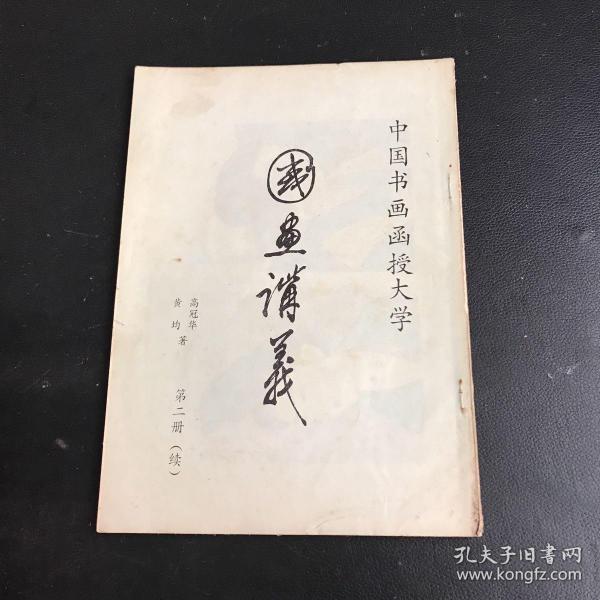 中国书画函授大学
國畫講義
高冠华
黄均著
第二册(续)
孔夫子旧书网
www.kongfz.com